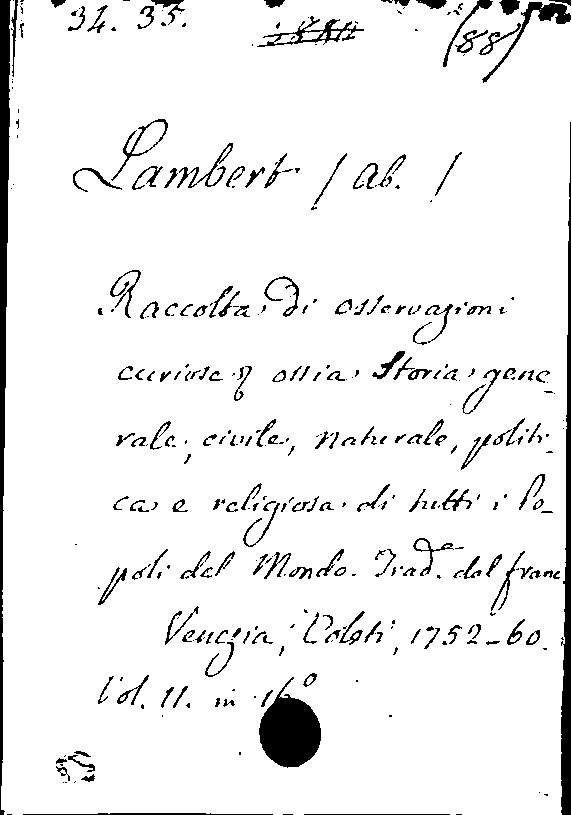 34. 35. (88)
Lambert / ab. /
Raccolta di osservazioni
curiose ossia Storia gene-
rale, civile, naturale, politi-
ca e religiosa di tutti i Po-
poli del Mondo. Trad.e dal franc.
Venezia, Coleti, 1752-60.
Vol. 11. in 16°